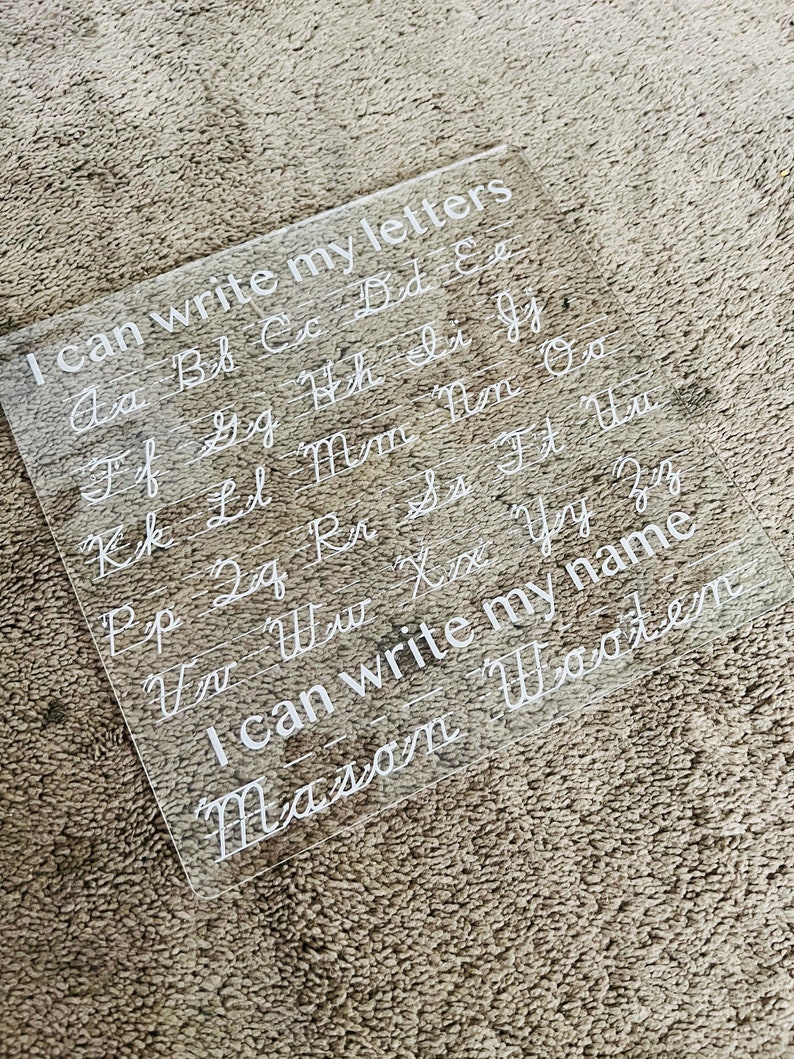 I can write my letters
Aa Bb Cc Dd Ee
Ff Gg Hh Ii Jj
Kk Ll Mm Nn Oo
Pp Qq Rr Ss Tt Uu
Vv Ww Xx Yy Zz
I can write my name
Mason Wooten